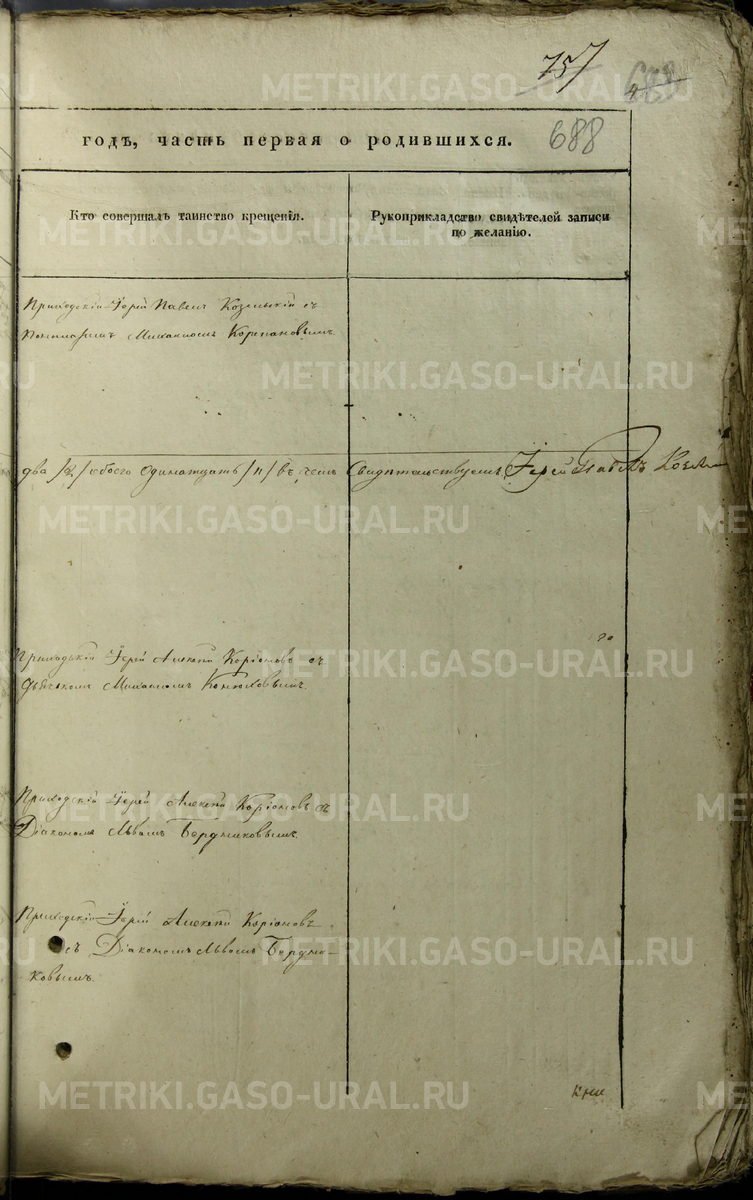 757
688
годѣ, часть первая о родившихся. 688
Кто совершалъ таинство крещенія.
Рукоприкладство свидѣтелей записи
по желанію.
Приходскій Іерей Павелъ съ
Пономаремъ Михаиломъ
два /2/ обоего одинатцать /11/ въ чемъ Свидѣтельствуемъ Іерей Павелъ
Приходскій Іерей Алексѣй Коріоновъ съ
Дьячкомъ Михаиломъ Конюховымъ.
Приходскій Іерей Алексѣй Коріоновъ съ
Діакономъ Львомъ Бердниковымъ.
Приходскій Іерей Алексѣй Коріоновъ
съ Діакономъ Львомъ Бердни-
ковымъ.
METRIKI.GASO-URAL.RU